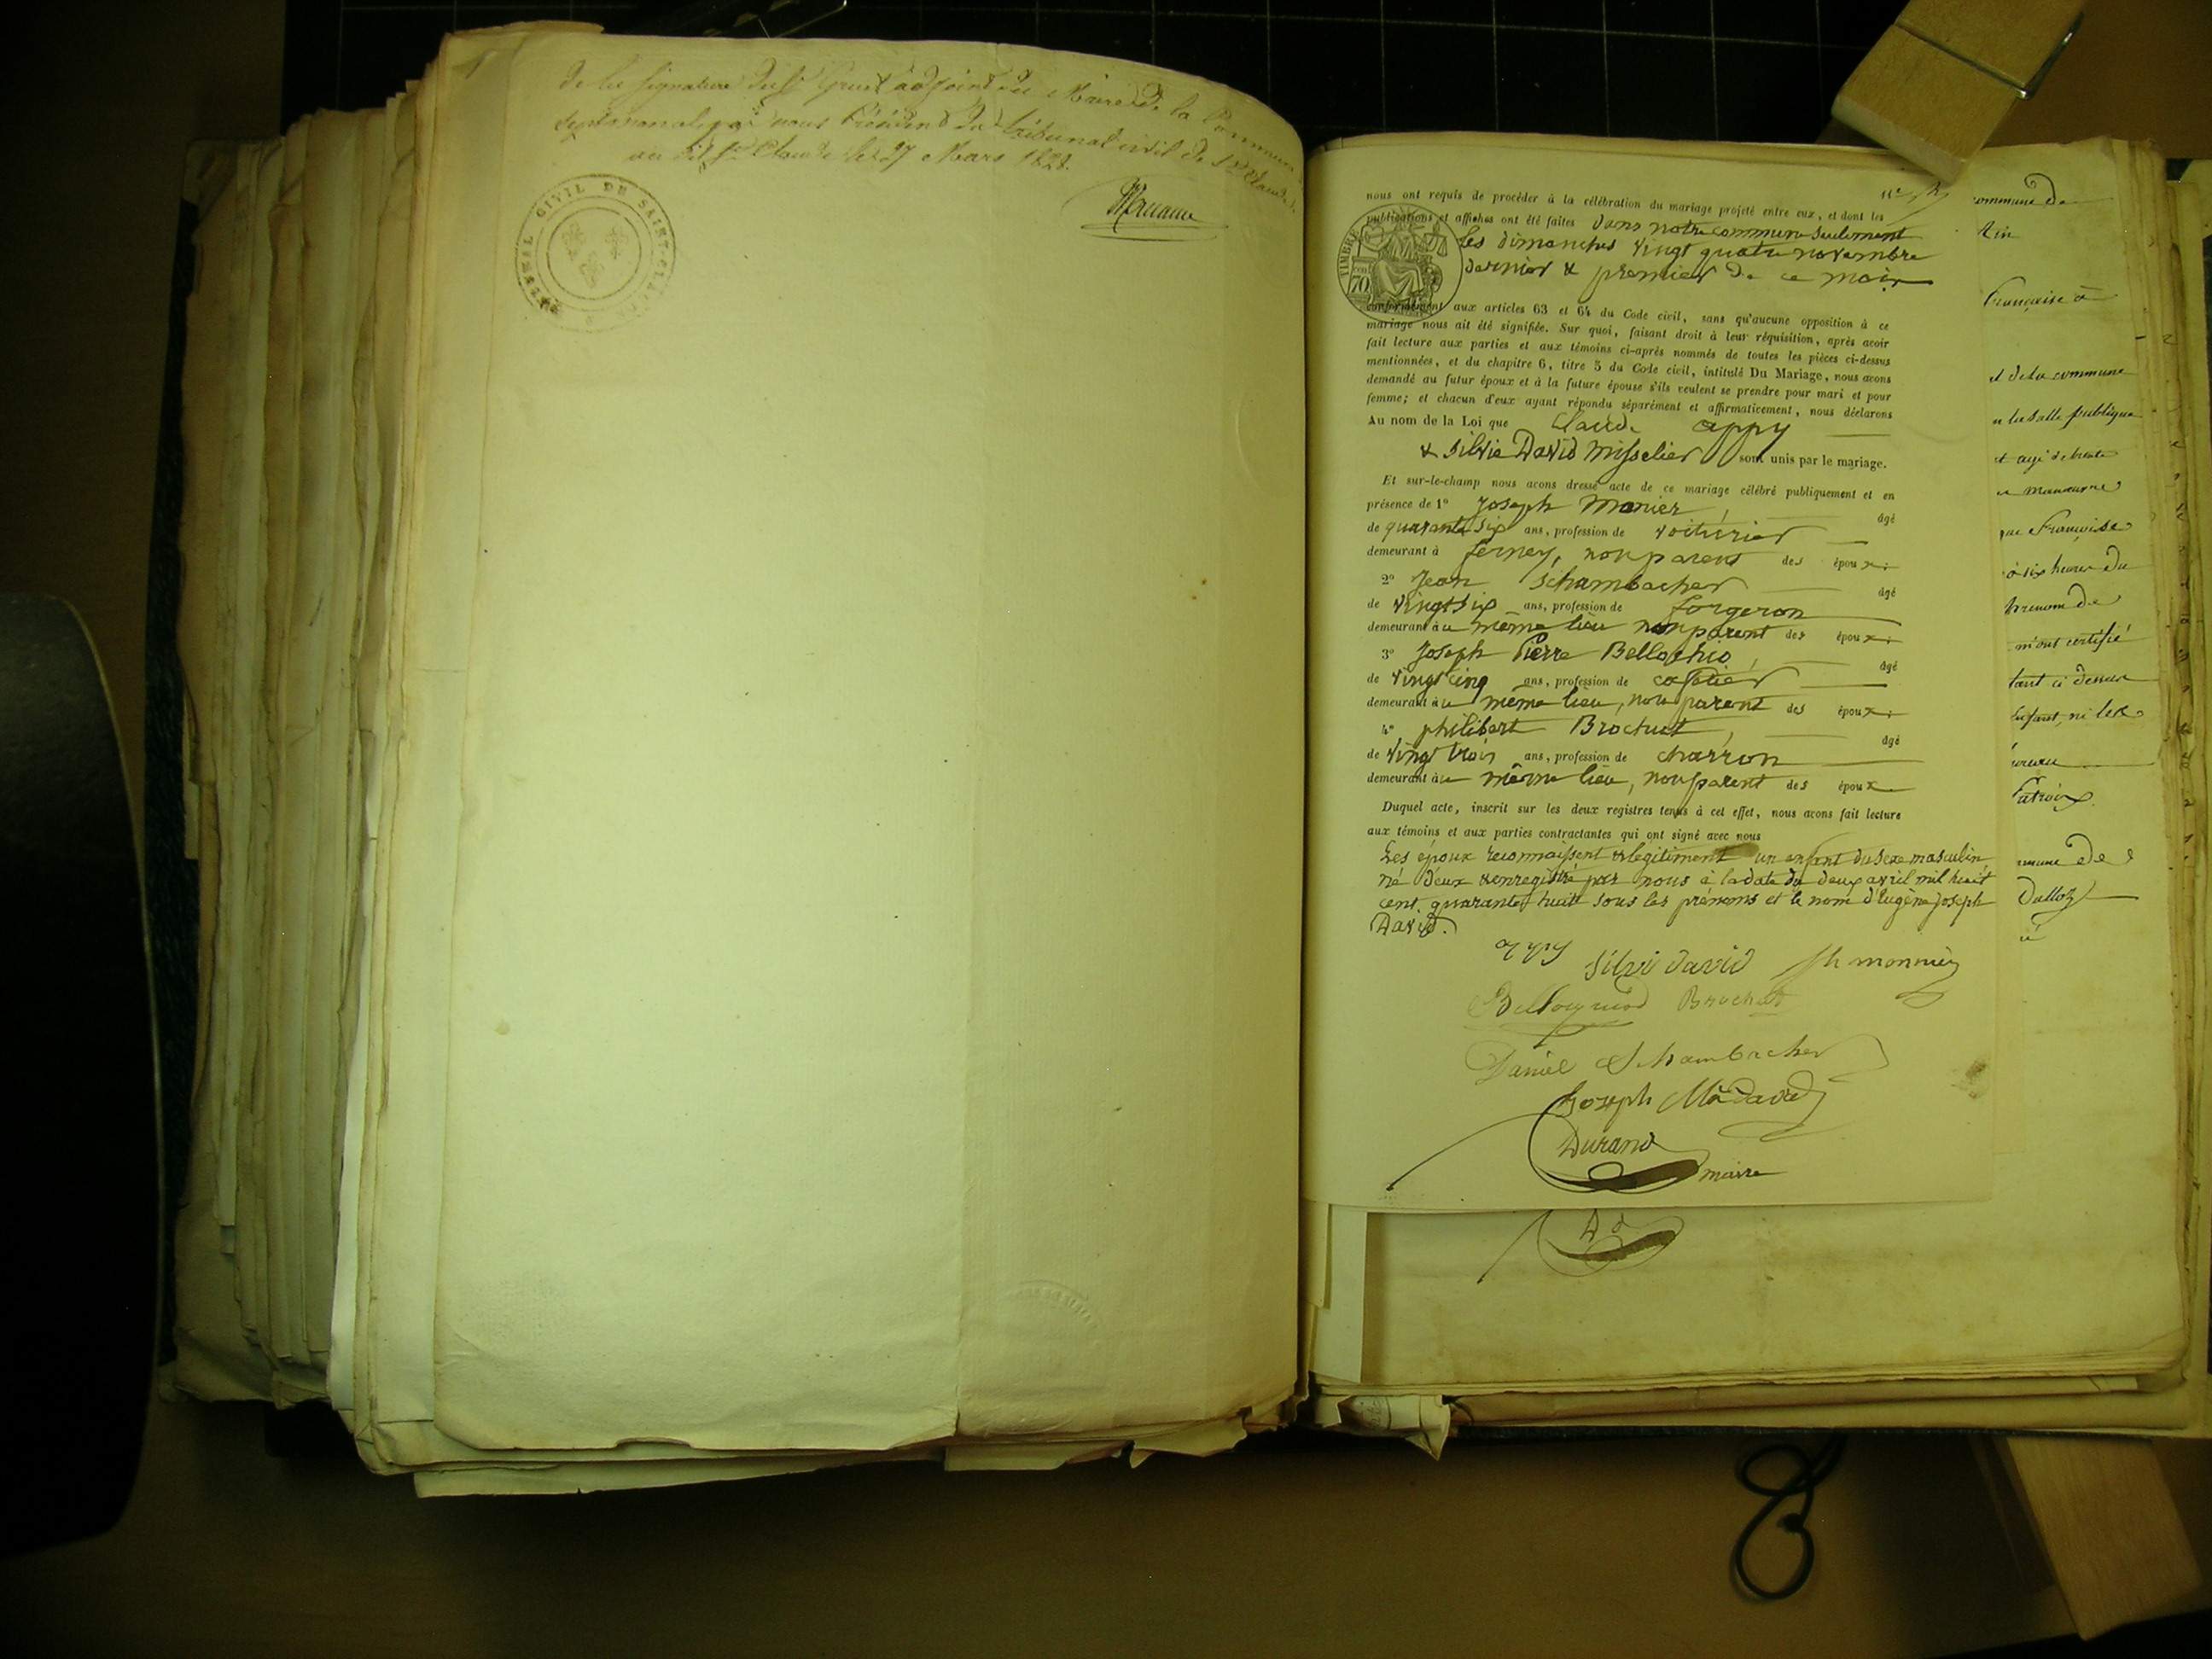 de la signature du Sr Gruet adjoint du Maire de la Commune
par nous Président du tribunal civil de St Claude
St Claude le 27 Mars 1828.
TRIBUNAL CIVIL DE SAINT-CLAUDE
nous ont requis de procéder à la célébration du mariage projeté entre eux, et dont les
publications et affiches ont été faites dans notre commune seulement
les dimanches vingt quatre novembre
dernier & premier de ce mois
TIMBRE
70
conformément aux articles 63 et 64 du Code civil, sans qu'aucune opposition à ce
mariage nous ait été signifiée. Sur quoi, faisant droit à leur réquisition, après avoir
fait lecture aux parties et aux témoins ci-après nommés de toutes les pièces ci-dessus
mentionnées, et du chapitre 6, titre 5 du Code civil, intitulé Du Mariage, nous avons
demandé au futur époux et à la future épouse s'ils veulent se prendre pour mari et pour
femme; et chacun d'eux ayant répondu séparément et affirmativement, nous déclarons
Au nom de la Loi que Claude appy
& Silvie David Misselier sont unis par le mariage.
Et sur-le-champ nous avons dressé acte de ce mariage célébré publiquement et en
présence de 1° Joseph Monier, âgé
de quarante six ans, profession de voiturier
demeurant à Ferney, non parent des époux;
2° Jean Schambacher âgé
de vingt six ans, profession de forgeron
demeurant au même lieu non parent des époux;
3° Joseph Pierre Bellochio, âgé
de vingt cinq ans, profession de cafetier
demeurant au même lieu, non parent des époux;
4° philibert Brochuet, âgé
de vingt trois ans, profession de charron
demeurant au même lieu, non parent des époux
Duquel acte, inscrit sur les deux registres tenus à cet effet, nous avons fait lecture
aux témoins et aux parties contractantes qui ont signé avec nous
Les époux reconnaissent & légitiment un enfant du sexe masculin,
né d'eux & enregistré par nous à la date du deux avril mil huit
cent quarante huit sous les prénoms et le nom d'Eugène Joseph
David.
appy Silvi David Jh monnier
Brochet
Daniel Schambacher
Joseph Mie David
Durand
maire
D d
commune de
Ain
Française à
et de la commune
la salle publique
et agé de trente
manœuvre
que Françoise
à six heures du
prenom de
m'ont certifié
tant ci dessus
enfant, ni les
Patroix
commune de
Dalloz